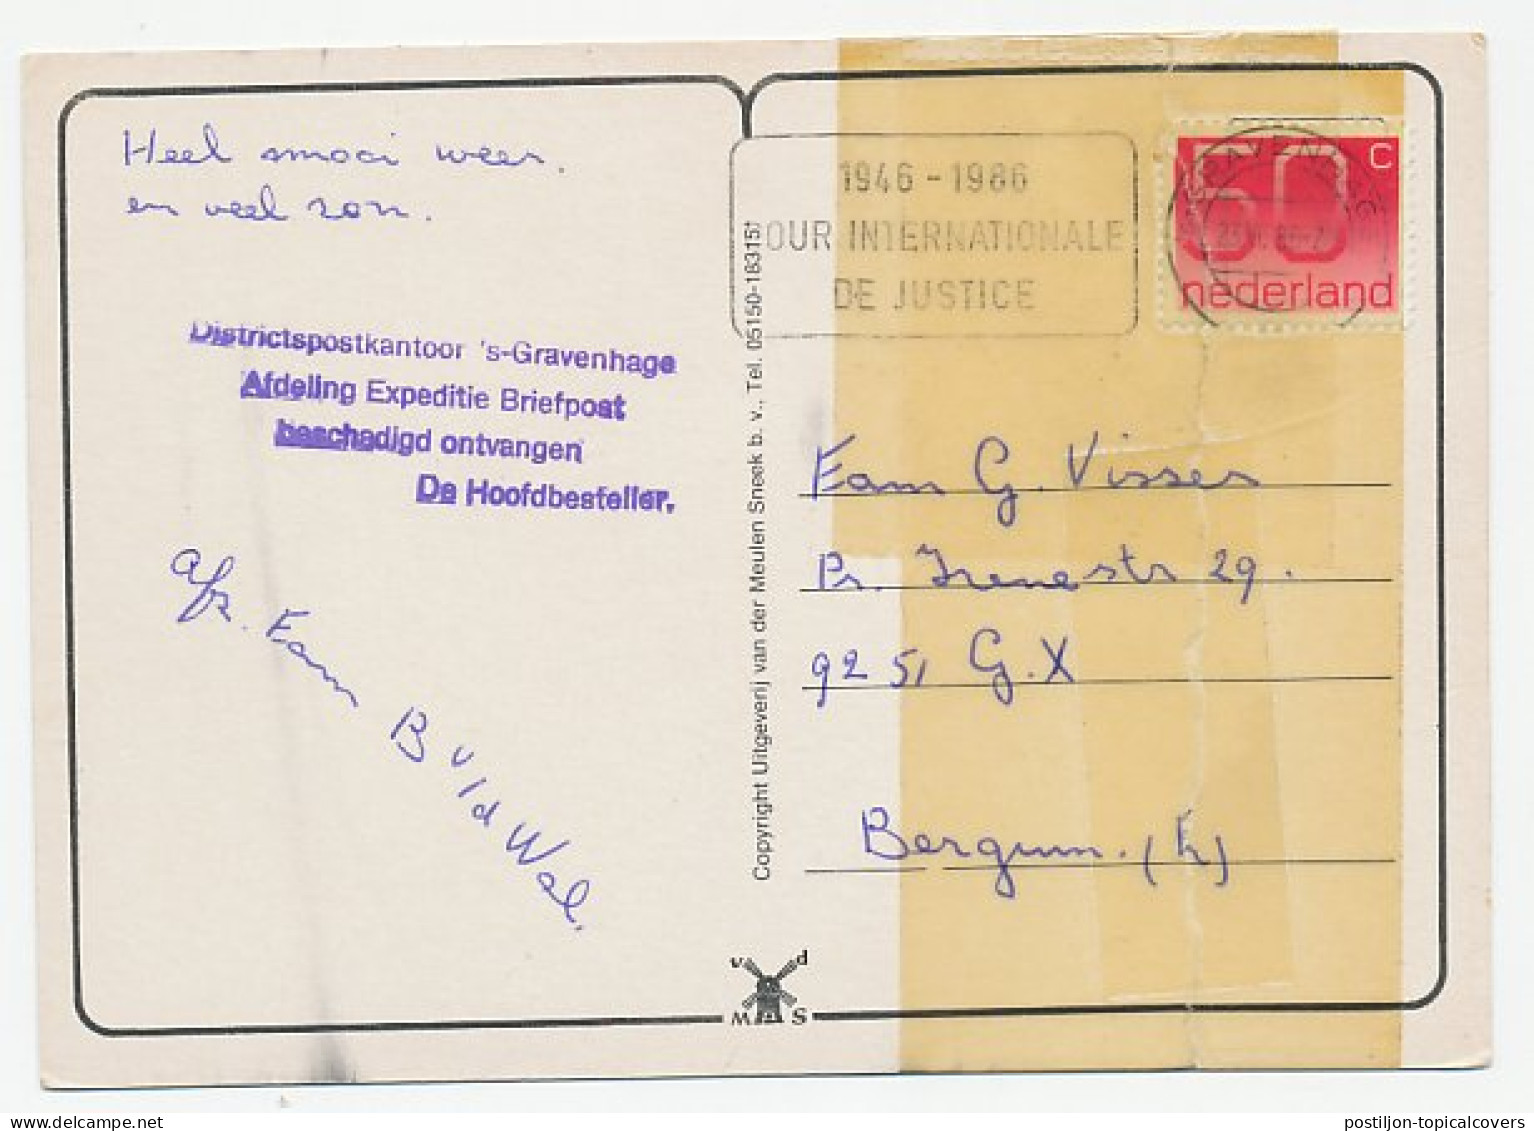 Heel mooi weer.
en veel zon.
Districtspostkantoor 's-Gravenhage
Afdeling Expeditie Briefpost
beschadigd ontvangen
De Hoofdbesteller.
afz. Fam B v/d Wal.
Copyright Uitgeverij van der Meulen Sneek b. v., Tel. 05150-18315
v d
M S
1946 - 1986
COUR INTERNATIONALE
DE JUSTICE
'S-GRAVENHAGE
60 c
nederland
Fam G. Visser
Pr. Irenestr 29.
9251 G.X
Bergum. (Fr)
postiljon-topicalcovers.com